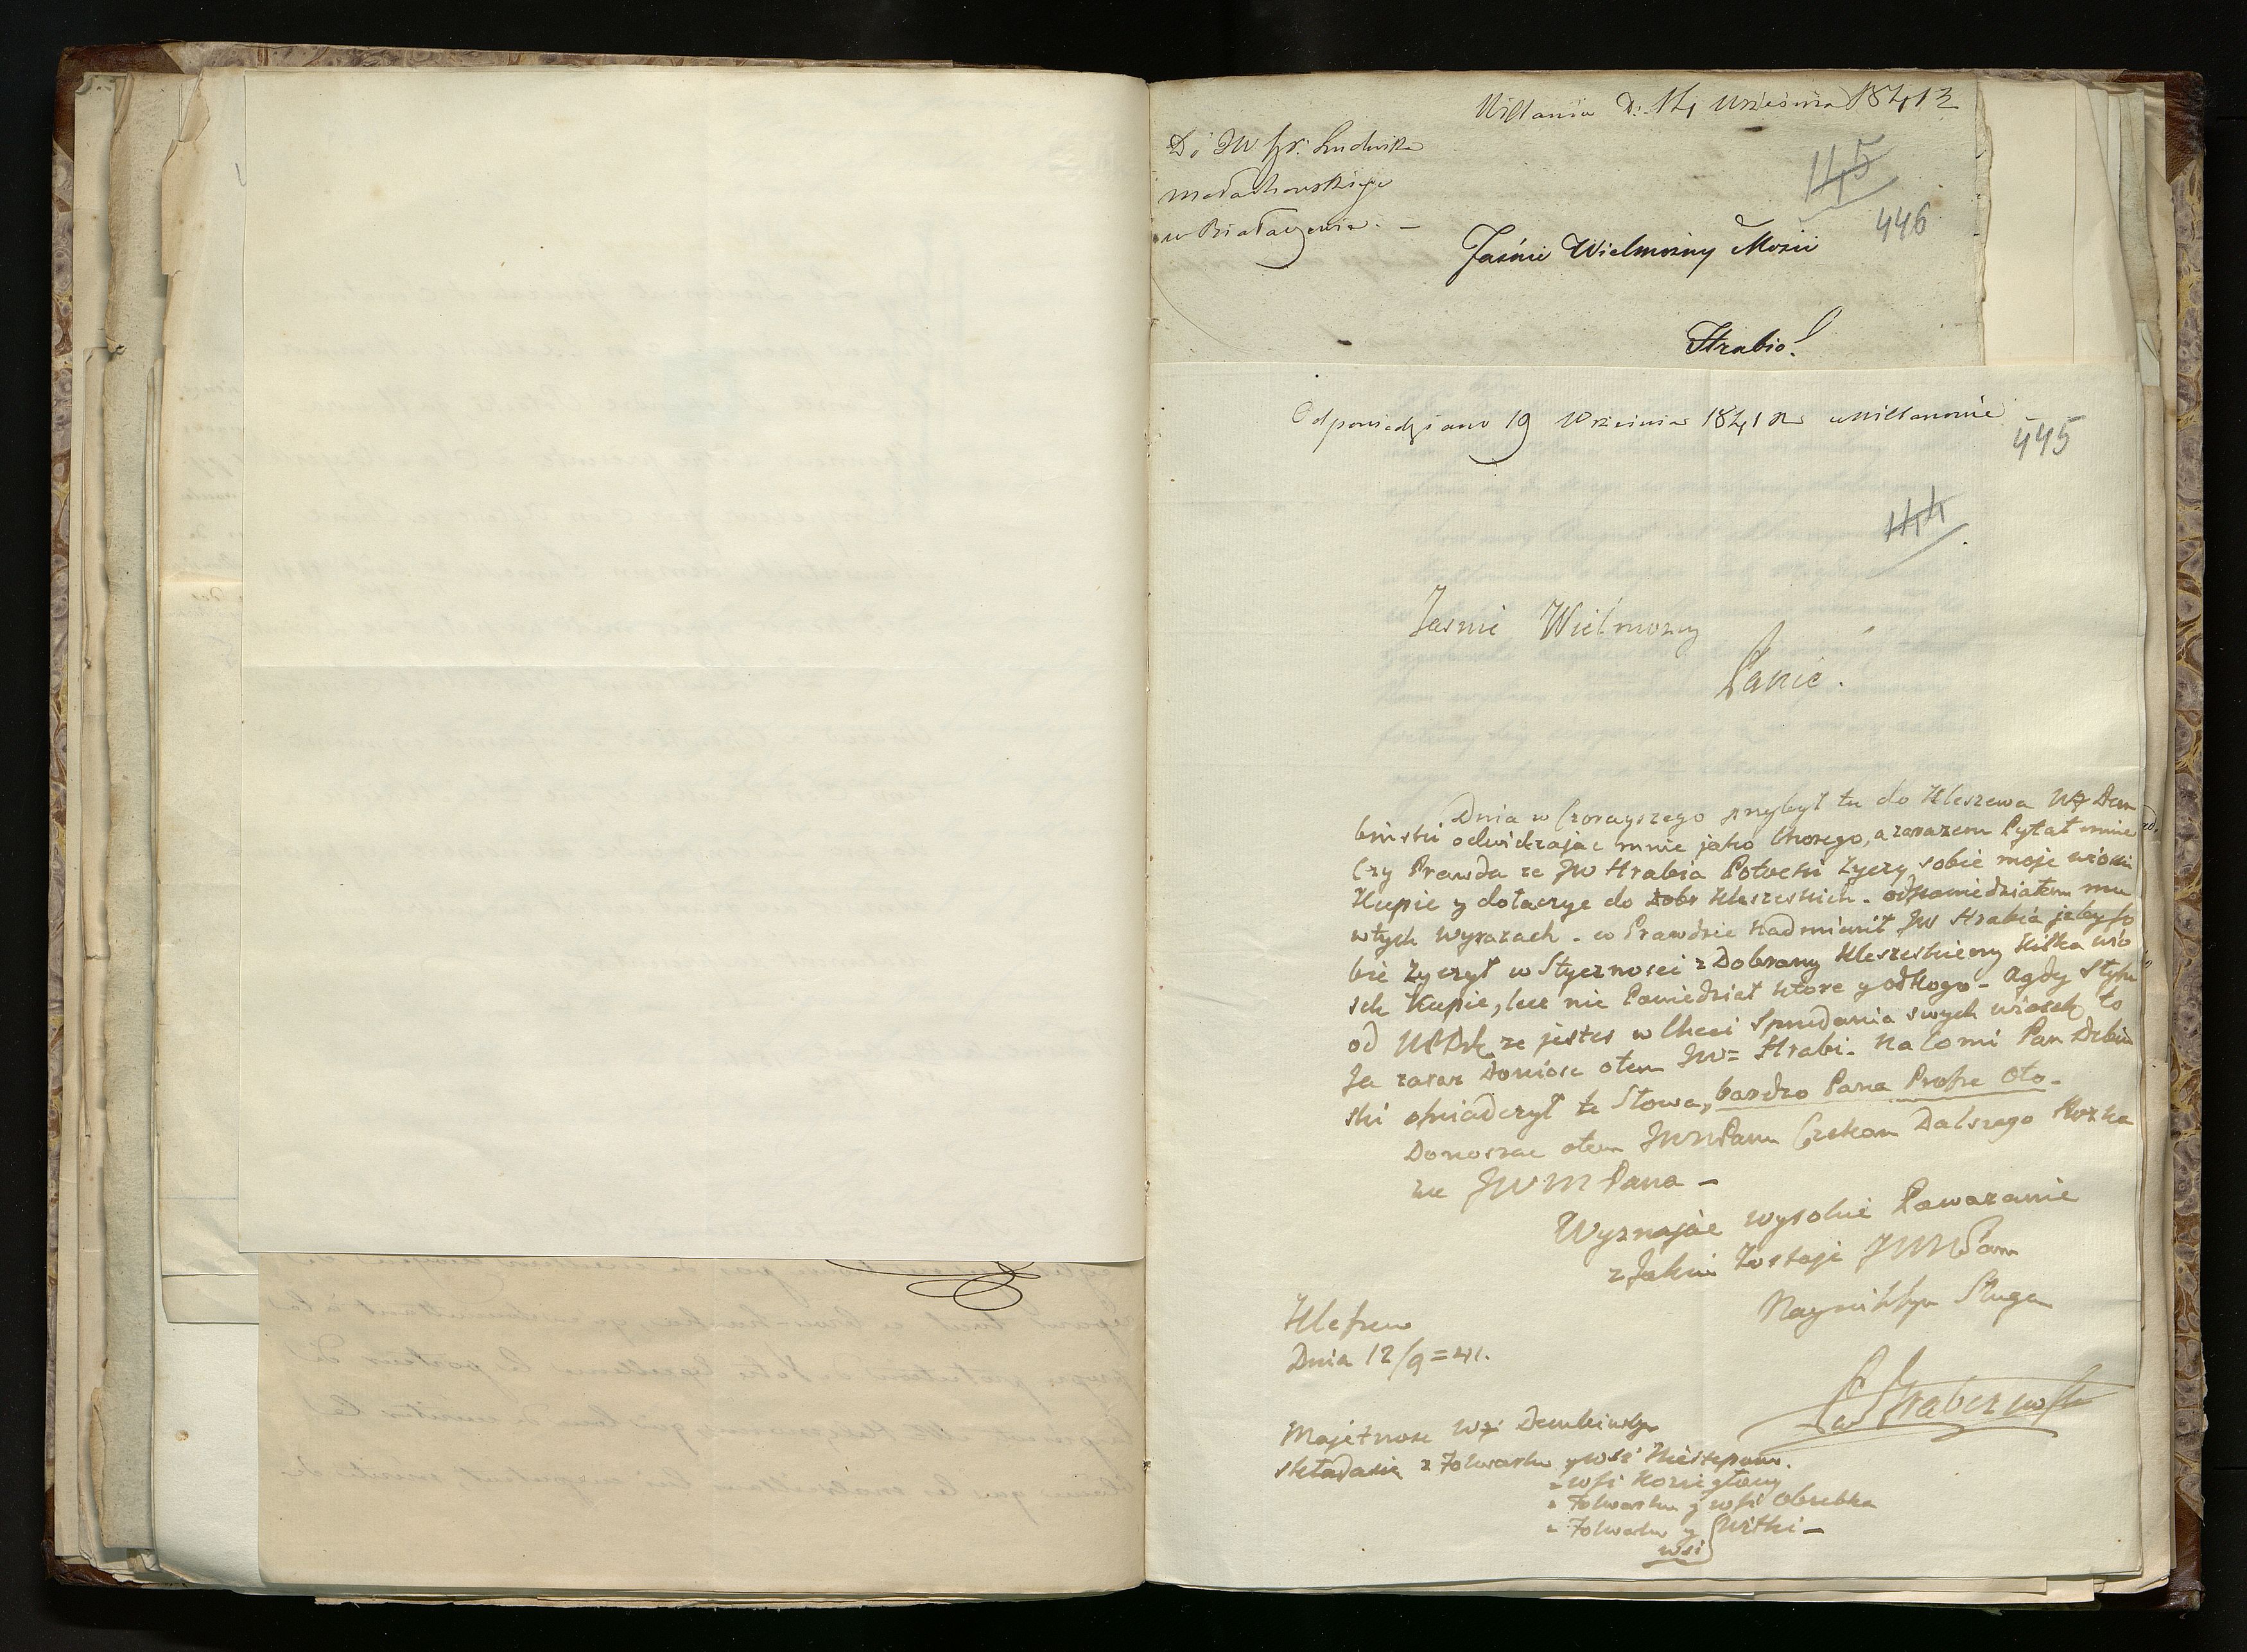 Willanów D: 14 Września 1841 r
Do JW hr: Ludwika
Małachowskiego
w Białaczewie. —
145
446
Jaśnie Wielmożny Mości
Hrabio!
Odpowiedziano 19 Września 1841 r w Willanowie
445
144
Jasnie Wielmozny
Panie.
Dnia w Czorayszego przybył tu do Kleszewa WJ Dem
binski odwidzając mnie jako Chorego, a zarazem Pytał mnie
Czy Prawda ze JW Hrabia Potocki Zyczy sobie moje wioski
Kupic y dołaczyc do Dobr Kleszeskich. odpowiedziałem mu
w tych Wyrazach. w Prawdzie Nadmienił JW Hrabia jakby so
bie Zyczył w Stycznosci z Dobramy Kleszeskiemy Kilka wio
sek Kupic, lecz nie Powiedział ktore y od Kogo - a gdy Słysze
od WPDk ze jestes w Checi Sprzedania swych wiosek to
Ja zaraz Doniose otem JW= Hrabi. Na Co mi Pan Debin
ski oswiadczył te Słowa, bardzo Pana Prosze oto.
Donoszac otem JWWPanu Czekam Dalszego Rozka
zu JWM Pana —
Wyznajac wysokie Powazanie
z Jakim Zostaje JWWPanu
Nayniszszym Sługa
Kleszew
Dnia 12/9 = 41.
Majetnosc WJ Dembinskiego
składa sie z Folwarku y wsi Niestepowa.
" wsi Kozieglowy
" Folwarku y wsi Obrebka
" Folwarku y wsi } Witki —